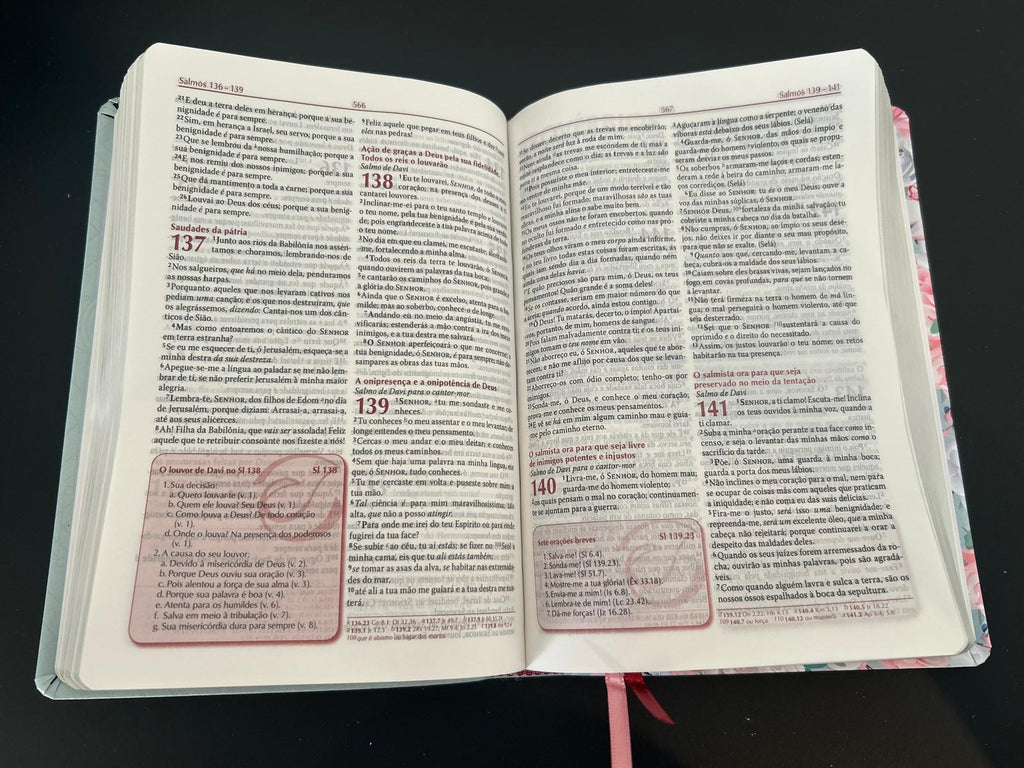 Salmos 136 – 139
566
21E deu a terra deles em herança; porque a sua be-
nignidade é para sempre.
22Sim, em herança a Israel, seu servo; porque a sua
benignidade é para sempre.
23Que se lembrou da humilhação; porque a
sua benignidade é para sempre.
24E nos remiu dos nossos inimigos; porque a sua
benignidade é para sempre.
25Que dá mantimento a toda a carne; porque a sua
benignidade é para sempre.
26Louvai ao Deus dos céus; porque a sua benig-
nidade é para sempre.
Saudades da pátria
137 1Junto aos rios da Babilônia nos assen-
tamos e choramos, lembrando-nos de
Sião.
2Nos salgueiros, que há no meio dela, penduramos
as nossas harpas.
3Porquanto aqueles que nos levaram cativos nos
pediam uma canção; e os que nos destruíram, que
os alegrássemos, dizendo: Cantai-nos um dos cân-
ticos de Sião.
4Mas como entoaremos o cântico do SENHOR
em terra estranha?
5Se eu me esquecer de ti, ó Jerusalém, esqueça-se a
minha destra da sua destreza.
6Apegue-se-me a língua ao paladar se me não lem-
brar de ti, se não preferir Jerusalém à minha maior
alegria.
7Lembra-te, SENHOR, dos filhos de Edom no dia
de Jerusalém, porque diziam: Arrasai-a, arrasai-a,
até aos seus alicerces.
8Ah! Filha da Babilônia, que vais ser assolada! Feliz
aquele que te retribuir consoante nos fizeste a nós!
O louvor de Davi no Sl 138 Sl 138
1. Sua decisão:
a. Quero louvar-te (v. 1).
b. Quem ele louva? Seu Deus (v. 1).
c. Como louva a Deus? De todo coração
(v. 1).
d. Onde o louva? Na presença dos poderosos
(v. 1).
2. A causa do seu louvor:
a. Devido à misericórdia de Deus (v. 2).
b. Porque Deus ouviu sua oração (v. 3).
c. Pois alentou a força de sua alma (v. 3).
d. Porque sua palavra é boa (v. 4).
e. Atenta para os humildes (v. 6).
f. Salva em meio à tribulação (v. 7).
g. Sua misericórdia dura para sempre (v. 8).
9Feliz aquele que pegar em teus filhos e der com
eles nas pedras!
Ação de graças a Deus pela sua fidelidade.
Todos os reis o louvarão
Salmo de Davi
138 1Eu te louvarei, SENHOR, de todo o meu
coração; na presença dos deuses a ti
cantarei louvores.
2Inclinar-me-ei para o teu santo templo e louvarei
o teu nome, pela tua benignidade e pela tua verda-
de; pois engrandeceste a tua palavra acima de todo
o teu nome.
3No dia em que eu clamei, me escutaste;
fortalecendo a minha alma.
4Todos os reis da terra te louvarão, ó SENHOR,
quando ouvirem as palavras da tua boca;
5e cantarão os caminhos do SENHOR, pois grande é
a glória do SENHOR.
6Ainda que o SENHOR é excelso, atenta para o hu-
milde; mas ao soberbo, conhece-o de longe.
7Andando eu no meio da angústia, tu me revi-
vificarás; estenderás a mão contra a ira dos meus
inimigos, e a tua destra me salvará.
8O SENHOR aperfeiçoará o que me concerne; a
tua benignidade, ó SENHOR, é para sempre; não de-
sampares as obras das tuas mãos.
A onipresença e a onipotência de Deus
Salmo de Davi para o cantor-mor
139 1SENHOR, tu me sondaste e me co-
nheces.
2Tu conheces o meu assentar e o meu levantar; de
longe entendes o meu pensamento.
3Cercas o meu andar e o meu deitar; e conheces
todos os meus caminhos.
4Sem que haja uma palavra na minha língua, eis
que, ó SENHOR, tudo conheces.
5Tu me cercaste em volta e puseste sobre mim a
tua mão.
6Tal ciência é para mim maravilhosíssima; tão
alta, que não a posso atingir.
7Para onde me irei do teu Espírito ou para onde
fugirei da tua face?
8Se subir ao céu, tu aí estás; se fizer no Seol a
minha cama, eis que tu ali estás também;
9se tomar as asas da alva, se habitar nas extremida-
des do mar,
10até ali a tua mão me guiará e a tua destra me sus-
terá.
108 que é abismo ou lugar dos mortos
567
Salmos 139 – 141
11Se disser: decerto que as trevas me encobrirão;
então a noite será luz à roda de mim.
12Nem ainda as trevas me escondem de ti; mas a
noite resplandece como o dia; as trevas e a luz são
para ti a mesma coisa.
13Pois possuíste o meu interior; entreteceste-me
14Eu te louvarei, porque de um modo terrível e tão
maravilhoso fui formado; maravilhosas são as tuas
obras, e a minha alma o sabe muito bem.
15Os meus ossos não te foram encobertos, quando
no oculto fui formado e entretecido como nas pro-
fundezas da terra.
16Os teus olhos viram o meu corpo ainda informe,
e no teu livro todas estas coisas foram escritas, as
quais iam sendo dia a dia formadas, quando nem
ainda uma delas havia.
17E quão preciosos são para mim, ó Deus, os teus
pensamentos! Quão grande é a soma deles!
18Se os contasse, seriam em maior número do que
a areia; quando acordo, ainda estou contigo.
19Ó Deus! Tu matarás, decerto, o ímpio! Apartai-
vos, portanto, de mim, homens de sangue.
20Pois falam malvadamente contra ti; e os teus ini-
migos tomam o teu nome em vão.
21Não aborreço eu, ó SENHOR, aqueles que te abor-
recem, e não me aflijo por causa dos que se levan-
tam contra ti?
22Aborreço-os com ódio completo; tenho-os por
inimigos.
23Sonda-me, ó Deus, e conhece o meu coração;
prova-me e conhece os meus pensamentos.
24E vê se há em mim algum caminho mau e guia-
-me pelo caminho eterno.
O salmista ora para que seja livre
de inimigos potentes e injustos
Salmo de Davi para o cantor-mor
140 1Livra-me, ó SENHOR, do homem mau;
guarda-me do homem violento;
2os quais pensam o mal no coração; continuamen-
te se ajuntam para a guerra.
Sete orações breves Sl 139.23
1. Salva-me! (Sl 6.4).
2. Sonda-me! (Sl 139.23).
3. Lava-me! (Sl 51.7).
4. Mostre-me a tua glória! (Êx 33.18).
5. Envia-me a mim! (Is 6.8).
6. Lembra-te de mim! (Lc 23.42).
7. Dá-me forças! (Jz 16.28).
3Aguçaram a língua como a serpente; o veneno das
víboras está debaixo dos seus lábios. (Selá)
4Guarda-me, ó SENHOR, das mãos do ímpio e
guarda-me do homem violento; os quais se propu-
seram desviar os meus passos.
5Os soberbos armaram-me laços e cordas; esten-
deram a rede à beira do caminho; armaram-me la-
ços corrediços. (Selá)
6Eu disse ao SENHOR: tu és o meu Deus; ouve a
voz das minhas súplicas, ó SENHOR.
7SENHOR Deus, fortaleza da minha salvação, tu
cobriste a minha cabeça no dia da batalha.
8Não cumpras, ó SENHOR, ao ímpio os seus dese-
jos; não deixes ir por diante o seu mau propósito,
para que não se exalte. (Selá)
9Quanto aos que, cercando-me, levantam a ca-
beça, cubra-os a maldade dos seus lábios.
10Caiam sobre eles brasas vivas, sejam lançados no
fogo em covas profundas, para que se não tornem
a levantar.
11Não terá firmeza na terra o homem de má lín-
gua; o mal perseguirá o homem violento, até que
seja desterrado.
12Sei que o SENHOR 110sustentará a causa do
oprimido e o direito do necessitado.
13Assim, os justos louvarão o teu nome; os retos
habitarão na tua presença.
O salmista ora para que seja
preservado no meio da tentação
Salmo de Davi
141 1SENHOR, a ti clamo! Escuta-me! Inclina
os teus ouvidos à minha voz, quando a
ti clamar.
2Suba a minha oração perante a tua face como in-
censo, e seja o levantar das minhas mãos como o
sacrifício da tarde.
3Põe, ó SENHOR, uma guarda à minha boca;
guarda a porta dos meus lábios.
4Não inclines o meu coração para o mal, nem para
se ocupar de coisas más com aqueles que praticam
a iniquidade; e não coma eu das suas delícias.
5Fira-me o justo, será isso uma benignidade; e
repreenda-me, será um excelente óleo, que a minha
cabeça não rejeitará; porque continuarei a orar a
despeito das maldades deles.
6Quando os seus juízes forem arremessados da ro-
cha, ouvirão as minhas palavras, pois são agradá-
veis.
7Como quando alguém lavra e sulca a terra, são os
nossos ossos espalhados à boca da sepultura.
109 140.7 ou força 110 140.12 ou manterá